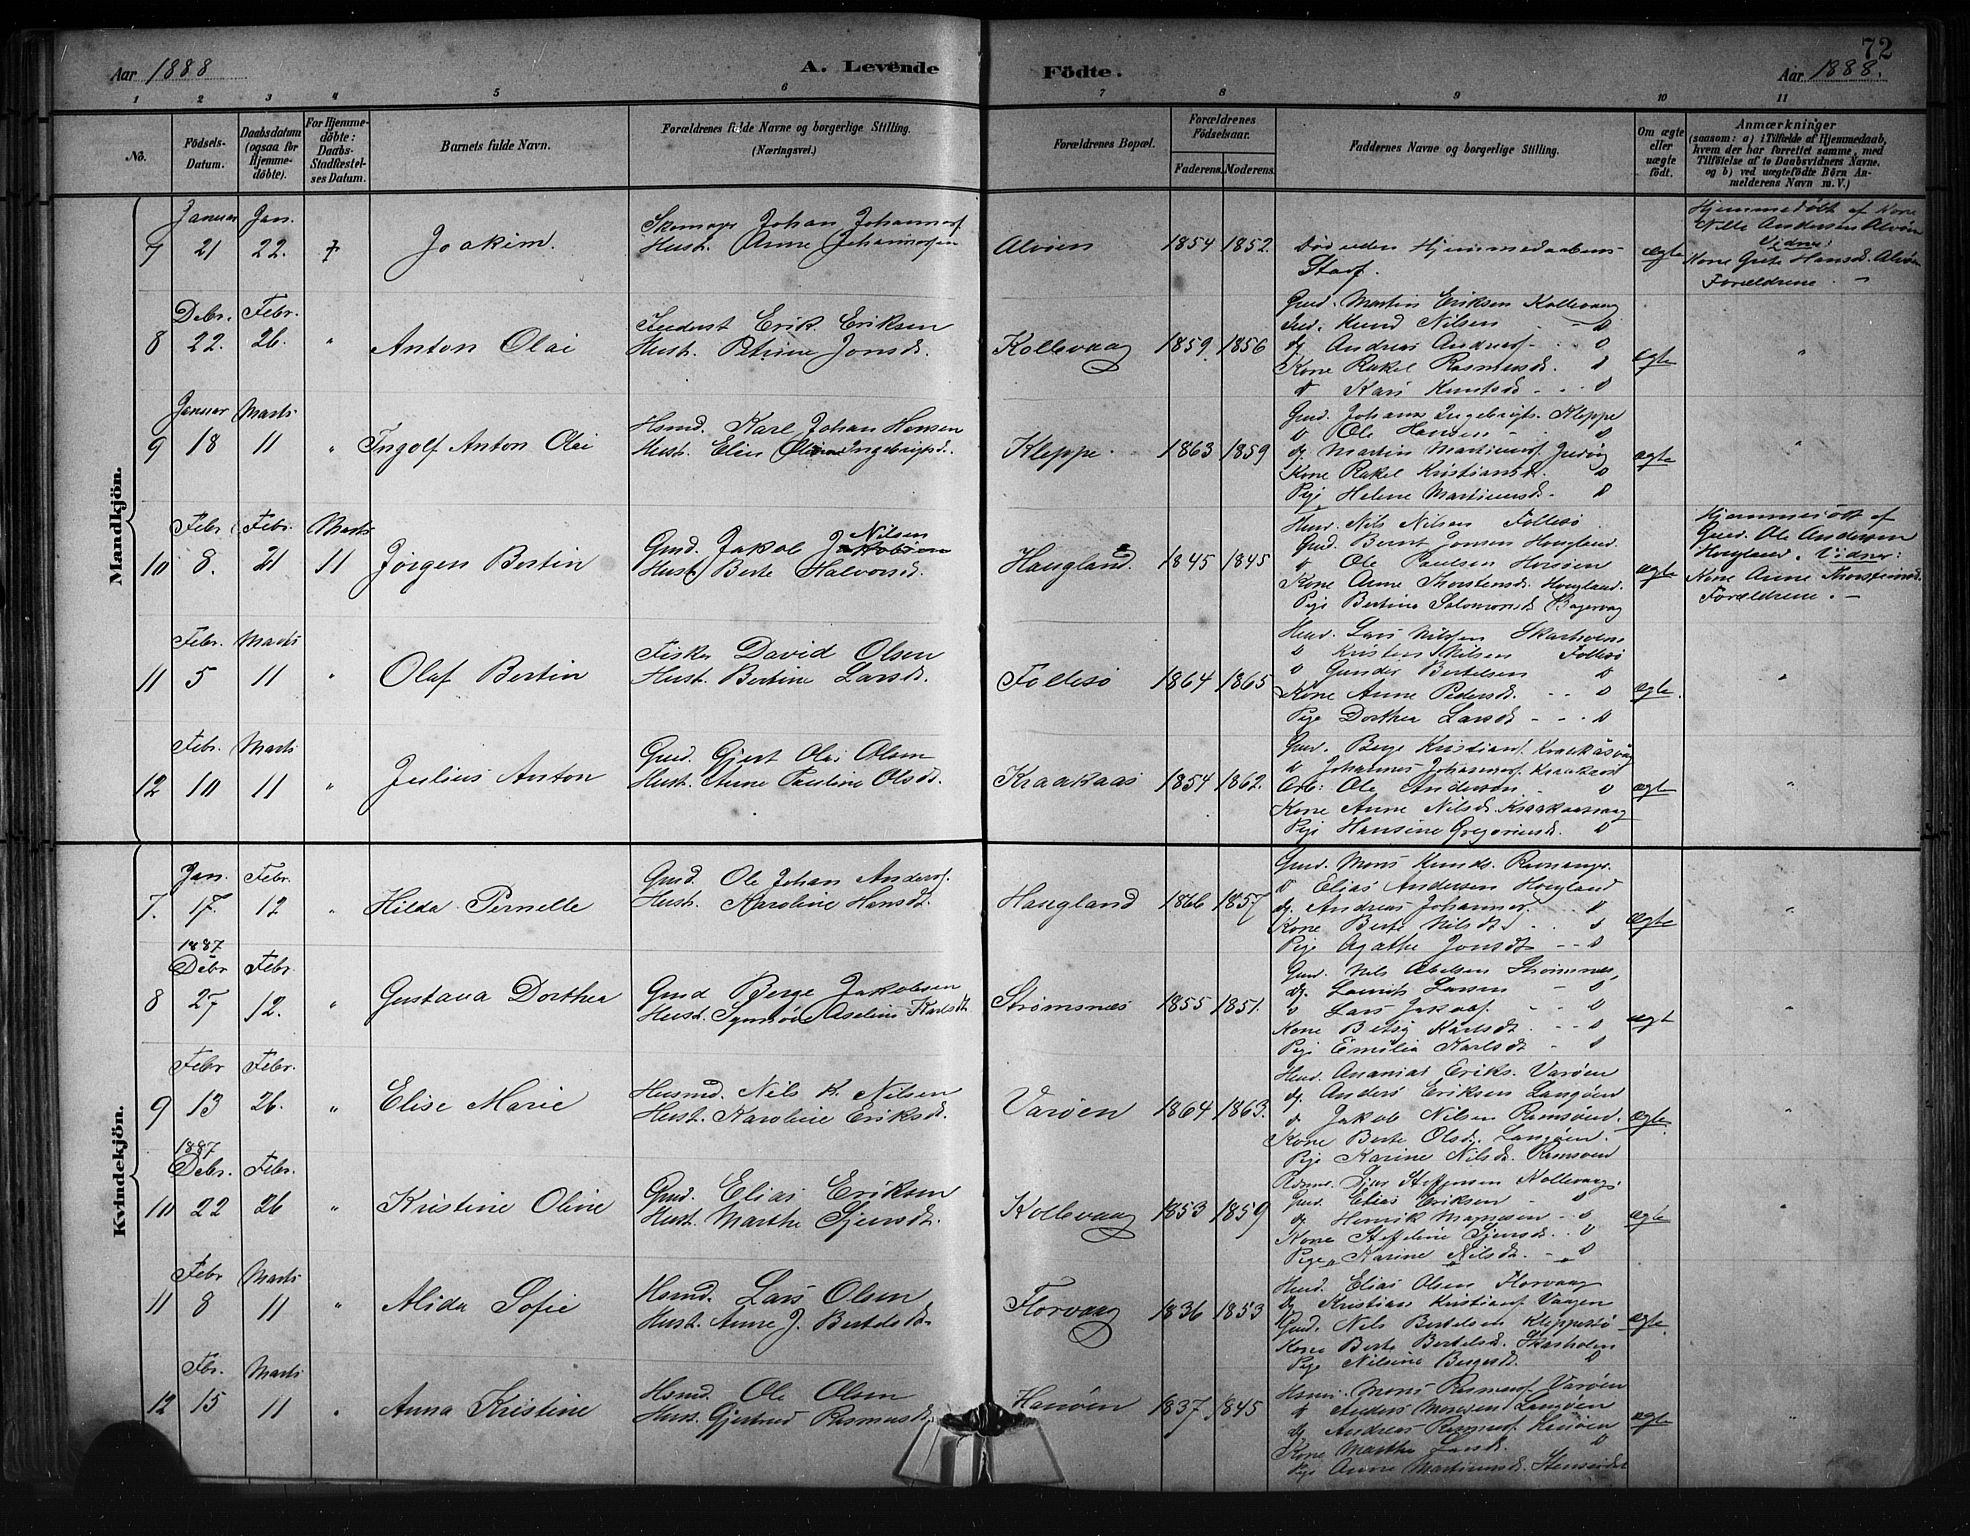 72
Aar 1888
A. Levende
Födte.
Aar 1888.
1 2 3 4 5 6 7 8 9 10 11
No.
Födsels-
Datum.
Daabsdatum
(ogsaa for
Hjemme-
döbte).
For Hjemme-
döbte:
Daabs-
Stadfæstel-
ses Datum.
Barnets fulde Navn.
Forældrenes fulde Navne og borgerlige Stilling.
(Næringsvei.)
Forældrenes Bopæl.
Forældrenes
Födselsaar.
Faderens. Moderens.
Faddernes Navne og borgerlige Stilling.
Om ægte
eller
uægte
födt.
Anmærkninger
(saasom: a) i Tilfælde af Hjemmedaab,
hvem der har forrettet samme, med
Tilföielse af to Daabsvidners Navne,
og b) ved uægtefödte Börn An-
melderens Navn m. V.)
Mandkjön.
Januar Jan.
7 21 22.
Joakim.
Skomager Johan Johannesf
Hust. Anne Johannesen
Alvöen 1854 1852.
Död uden Hjemmedaabens
Stadf.
ægte
Hjemmedöbt af Kone
Nille Andersen Alvöen
Vidner:
Kone Grete Hansd. Alvöen
Forældrene. "
Debr. Febr.
8 22. 26. "
Anton Olai
Inderst Erik Eriksen
Hust. Petrine Jonsd.
Kollevaag 1859. 1856
Gmd. Martin Eriksen Kollevaag
Ind. Knud Nilsen D
Ug Andreas Andersf. D
Kone Rakel Rasmusd. D
D Kari Knutsd. D
ægte "
Januar Marts
9 18 11 "
Ingolf Anton Olai
Hsmd. Karl Johan Hansen
Hust. Elen Oline Ingebrigtsd.
Kleppe. 1863 1859
Gmd. Johans Ingebrigts. Kleppe
D Ole Hansen D
Ug Martin Martinusf
Kone Rakel Kristiansd. D
Pige Helene Martinusd. D
ægte "
Febr. Febr. Marts
10 8. 21 11
Jörgen Bertin
Gmd. Jakob Nilsen
Hust. Berte Halvorsd.
Haugland. 1845 1845
Husm. Nils Nilsen Follesö
Gmd. Bernt Jonsen Hougland.
D Ole Paulsen Horöen
Kone Anne Thorstensd. Hougland.
Pige Bertine Salomonsd.
ægte
Hjemmedöbt af
Gmd. Ole Andersen
Hougland. Vidner:
Kone Anne Thorsteinsd.
Forældrene. —
Febr. Marts
11 5 11 "
Olaf Bertin
Fisker David Olsen
Hust. Bertine Larsd.
Follesö 1864 1865
Husm. Lars Nilsen Skarholmen
D Kristen Nilsen Follesö
D Gunder Bertelsen D
Kone Anne Pedersd. D
Pige Dorthea Larsd. D
ægte. "
Febr. Marts
12 10 11 "
Julius Anton
Gmd. Gjert Olai Olsen
Hust. Anne Pauline Olsdt.
Kraakaas 1854 1862.
Gmd. Berge Kristiansf. Kraakaasvaag
D Johannes Johannesf. Kraakaas
Arb: Ole Andersen D
Kone Anne Nilsd. Kraakaasvaag
Pige Hansine Gregoriusd. D
ægte "
Kvindekjön.
Jan. Febr.
7. 17. 12 "
Hilda Pernelle
Gmd. Ole Johan Andersf.
Hust. Karoline Hansdt.
Haugland 1866 1857
Gmd. Mons Knuds. Ramanger
D Elias Andersen Hougland
Ug Andreas Johannesf. D
Kone Berte Nilsdt. D
Pige Agathe Jonsdt D
ægte "
1887
Debr Febr.
8 27 12. "
Gustava Dorthea
Gmd Berge Jakobsen
Hust. Synnöve Aseline Karlsdt
Strömsnæs 1855 1851.
Gmd. Nils Abelsen Strömsnæs
Ug. Laurits Larsen D
D Lars Jakobsf. D
Kone Betsy Karlsdt. D
Pige Emilia Karlsdt D
ægt "
Febr Febr.
9 13 26. "
Elise Marie
Husmd. Nils K. Nilsen
Hust. Karoline Eriksd.
Varöen 1864 1863.
Husm. Ananias Eriks. Varöen
Ug. Anders Eriksen Langöen
D Jakob Nilsen Ramsöen.
Kone Berte Olsd. Langöen.
Pige Karine Nilsd. Ramsöen
ægte. "
1887
Debr. Febr.
10 22 26 "
Kristine Oline
Gmd. Elias Eriksen
Hust. Marthe Sjursdt.
Kollevaag 1853 1859
Sjur Steffensen Kollevaag.
Gmd. Elias Eriksen D
Ug Henrik Magnesen D
Kone Steffeline Sjursd. D
Pige Karine Nilsdt. D
ægte "
Febr Marts
11 8 11 "
Alida Sofie
Hsmd. Lars Olsen
Hust. Anne J. Bertelsdt.
Florvaag 1836 1853
Husm. Elias Olsen Florvaag
Ug Kristian Kristiansf. Vaagen
Gmd. Nils Bertelsen Kleppesö
Kone Berte Bertelsd. Skarholm
Pige Nilsine Bergesdt. D
ægte. "
Fbr. Marts
12 15 11 "
Anna Kristine
Hsmd. Ole Olsen
Hust. Gjertrud Rasmusdt.
Hanöen 1837 1845
Husm. Mons Rasmusf. Varöen
D Anders Monsen Langöen
Ug Andreas Rasmusf. Hanöen
Kone Marthe Larsd. D
Pige Anne Martinusd.
ægte